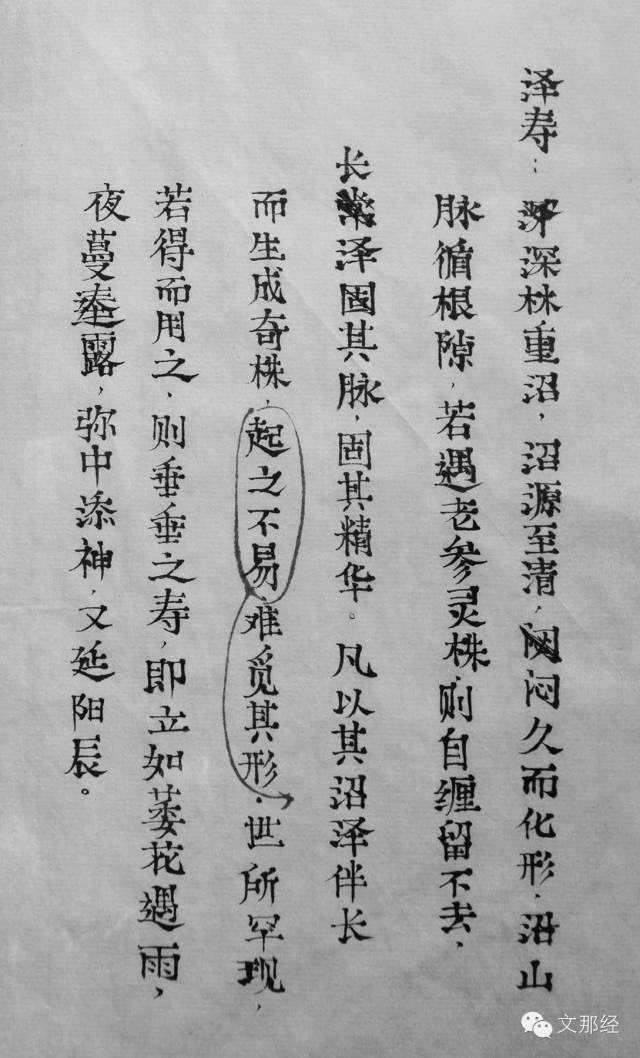 泽寿：深林重沼，沼源至清，闷久而化形，沿山
脉循根隙，若遇老参灵株，则自缠留不去，
长泽固其脉，固其精华。凡以其沼泽伴长
而生成奇株，起之不易，难觅其形，世所罕现，
若得而用之，则垂垂之寿，即立如萎花遇雨，
夜蔓露，弥中添神，又延阳辰。
文那经